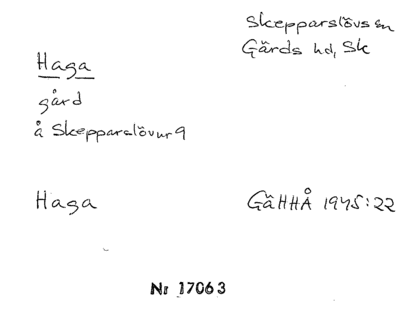 Skepparslövs sn
Gärds hd, Sk
Haga
gård
å Skepparslöv nr 9
Haga
GäHHÅ 1945:22
Nr 17063